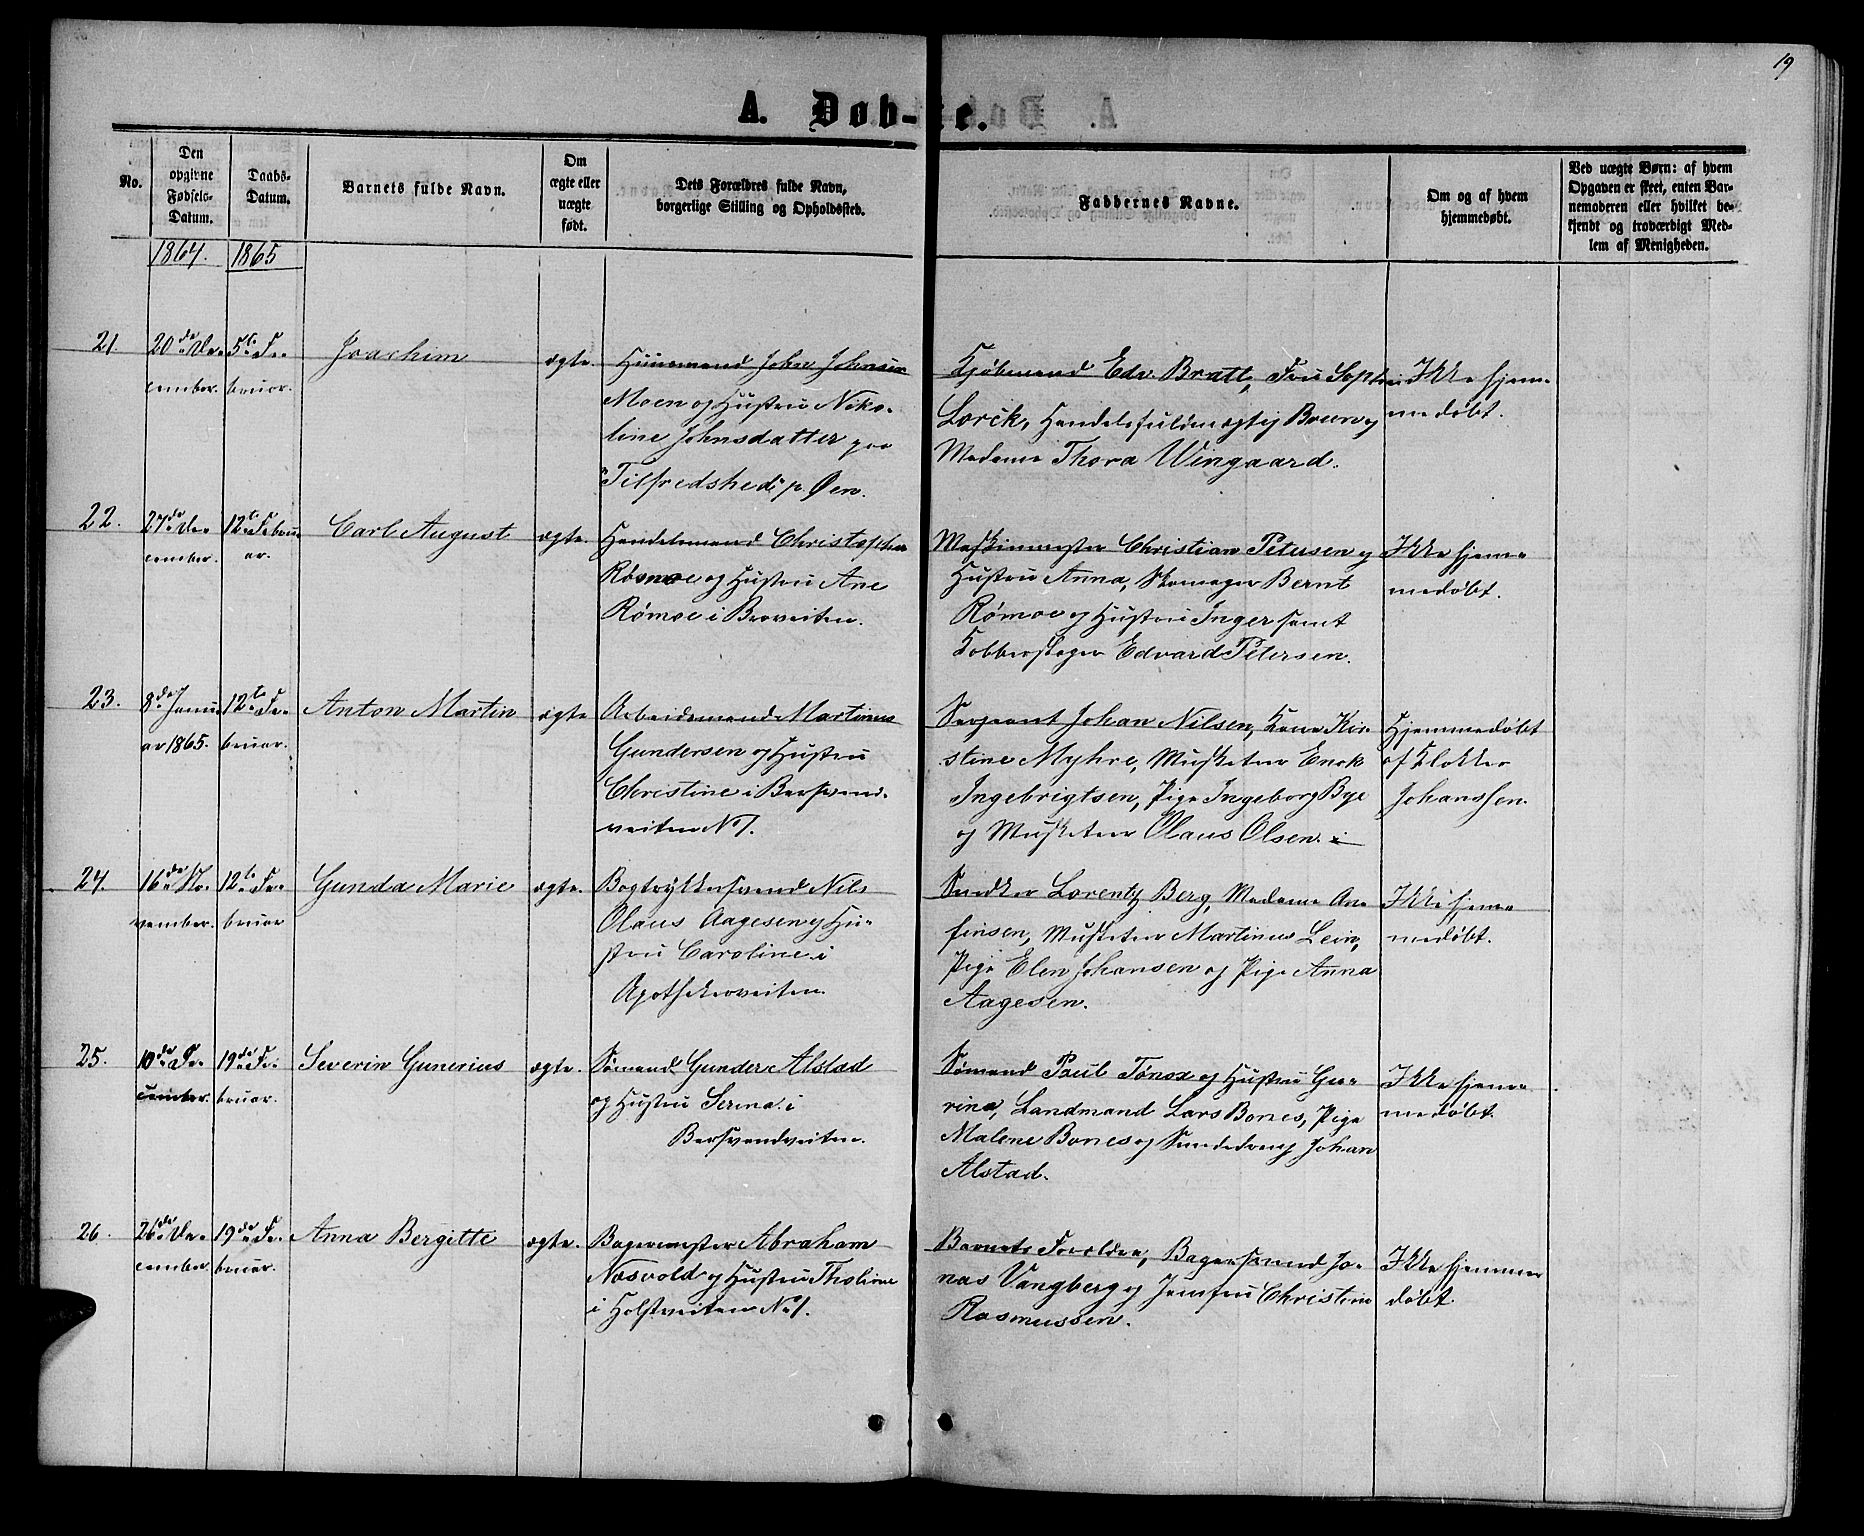 19
A. Døb-te.
No.
Den
opgivne
Fødsels-
Datum.
Daabs-
Datum.
Barnets fulde Navn.
Om
ægte eller
uægte
født.
Dets Forældres fulde Navn,
borgerlige Stilling og Opholdssted.
Faddernes Navne.
Om og af hvem
hjemmedøbt.
Ved uægte Børn: af hvem
Opgaven er skeet, enten Bar-
nemoderen eller hvilket be-
kjendt og troværdigt Med-
lem af Menigheden.
1864. 1865
21.
20de De-
cember.
5te Fe-
bruar.
Joachim
ægte.
Huusmand John Johnsen
Moen og Hustru Niko-
line Johnsdatter paa
"Tilfredshed" p. Øen.
Kjøbmand Edv. Bratt, Fru Sophie
Lorck, Handelsfuldmægtig Bruun og
Madame Thora Wingaard.
Ikke hjem-
medøbt.
22.
27de De-
cember.
12te Febru-
ar.
Carl August
ægte.
Handelsmand Christopher
Rømoe og Hustru Ane
Rømoe i Broveiten.
Maskinmester Christian Petersen og
Hustru Anna, Skomager Bernt
Rømoe og Hustru Inger samt
Kobberslager Edvard Petersen.
Ikke hjem-
medøbt.
23.
8de Janu-
ar 1865.
12te Fe-
bruar.
Anton Martin
ægte
Arbeidsmand Martinus
Gundersen og Hustru
Christine i Bersvend-
veiten No 1.
Sergeant Johan Nilsen, Kone Kir-
stine Myhre, Musketeer Enok
Ingebrigtsen, Pige Ingeborg Bye
og Musketeer Olaus Olsen.
Hjemmedøbt
af Klokker
Johanssen.
24.
16de No-
vember.
12te Fe-
bruar
Gunda Marie
ægte.
Bogtrykkersvend Nils
Olaus Aagesen og Hu-
stru Caroline i
Apothekerveiten.
Snedker Lorentz Berg, Madame An-
finsen, Musketeer Martinus Lein,
Pige Elen Johansen og Pige Anna
Aagesen.
Ikke hjem-
medøbt.
25.
10de De-
cember.
19de Fe-
bruar.
Severin Gunerius
ægte.
Sømand Gunder Alstad
og Hustru Serina i
Bersvendveiten.
Sømand Paul Tønox og Hustru Gu-
rina, Landmand Lars Bones, Pige
Malene Bones og Johan
Alstad.
Ikke hjem-
medøbt.
26.
26de De-
cember
19de Fe-
bruar.
Anna Bergitte
ægte.
Bagermester Abraham
Næsvold og Hustru Tholine
i Holstveiten No 1.
Barnets Forældre, Bagersvend Jo-
nas Vangberg og Jomfru Christine
Rasmussen.
Ikke hjemme-
døbt.